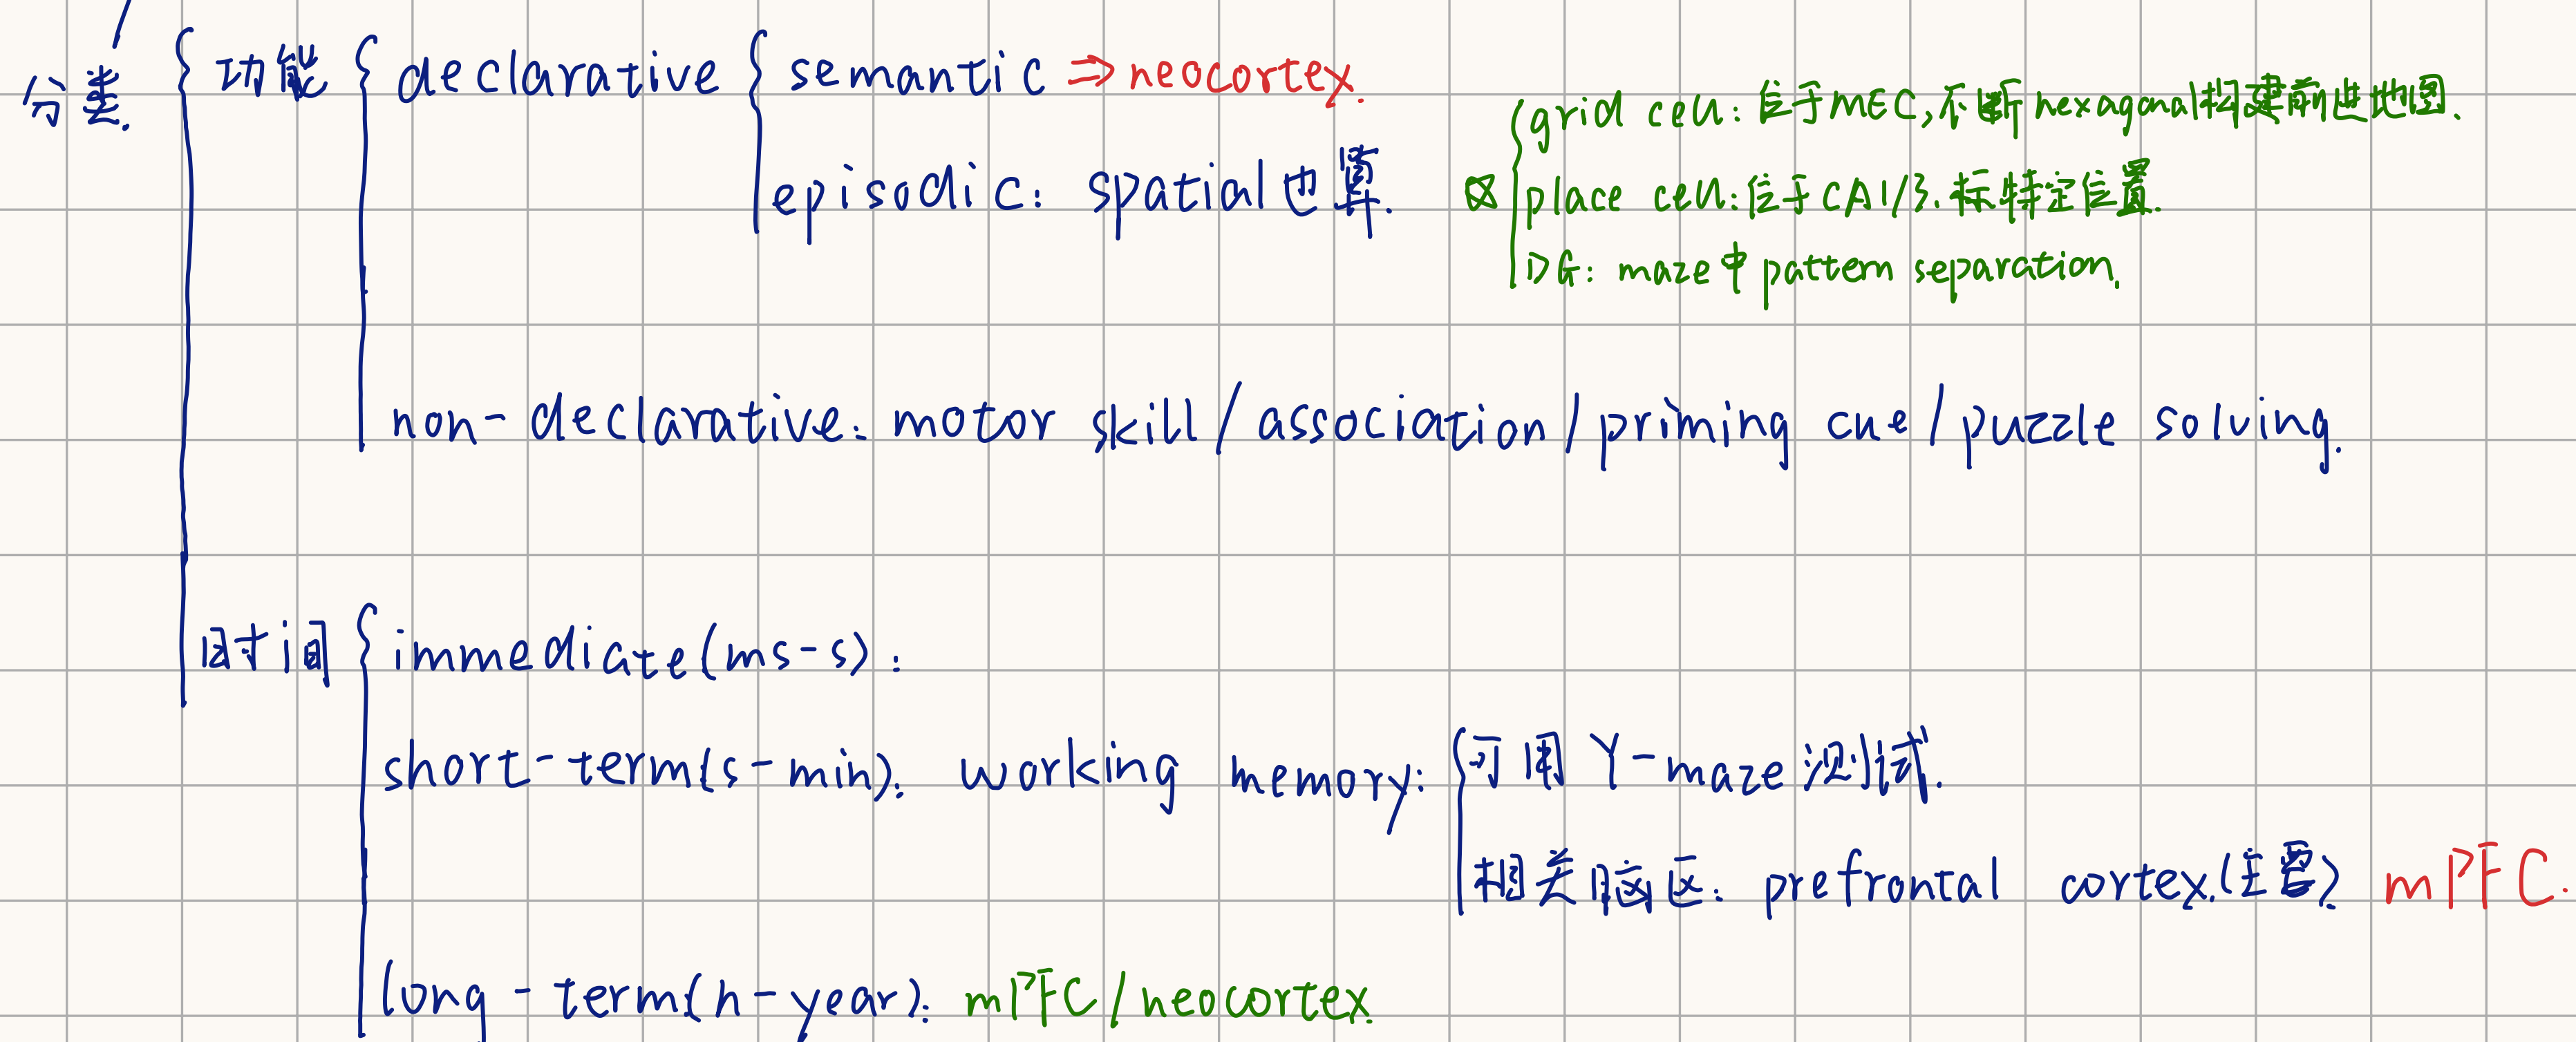 分类.
功能
declarative
semantic ⇒ neocortex.
episodic: spatial也算.
grid cell: 位于MEC, 不断hexagonal构建前进地图.
place cell: 位于CA1/3. 标特定位置.
DG: maze中pattern separation.
non-declarative: motor skill/association/priming cue/puzzle solving.
时间
immediate(ms-s):
short-term(s-min): working memory: 可用Y-maze测试.
相关脑区: prefrontal cortex.(主要) mPFC.
long-term(h-year): mPFC/neocortex.